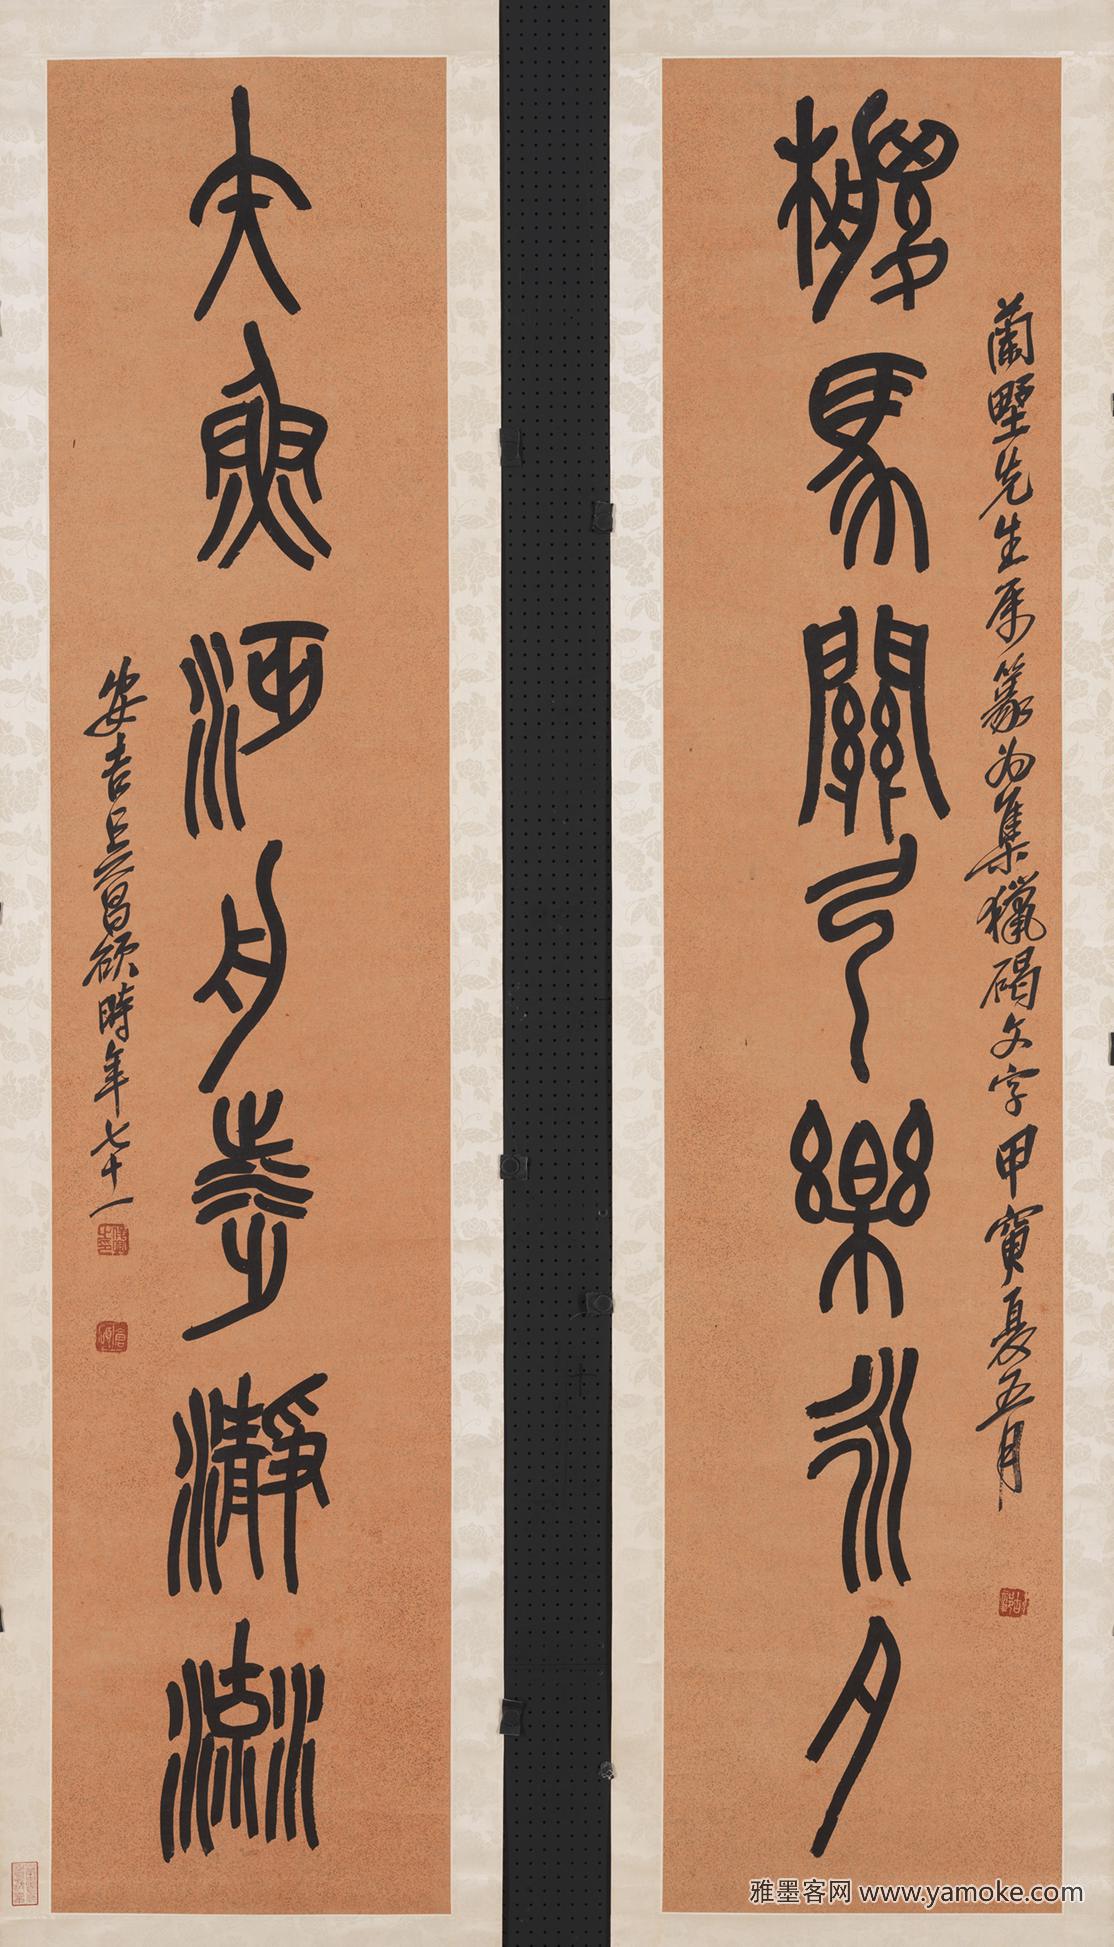 馬關弓樂永夕
蘭墅先生属篆為集獵碣文字甲寅夏五月
矢魚沔舟涉瀞流
安吉吳昌碩時年七十一
雅墨客网 www.yamoke.com